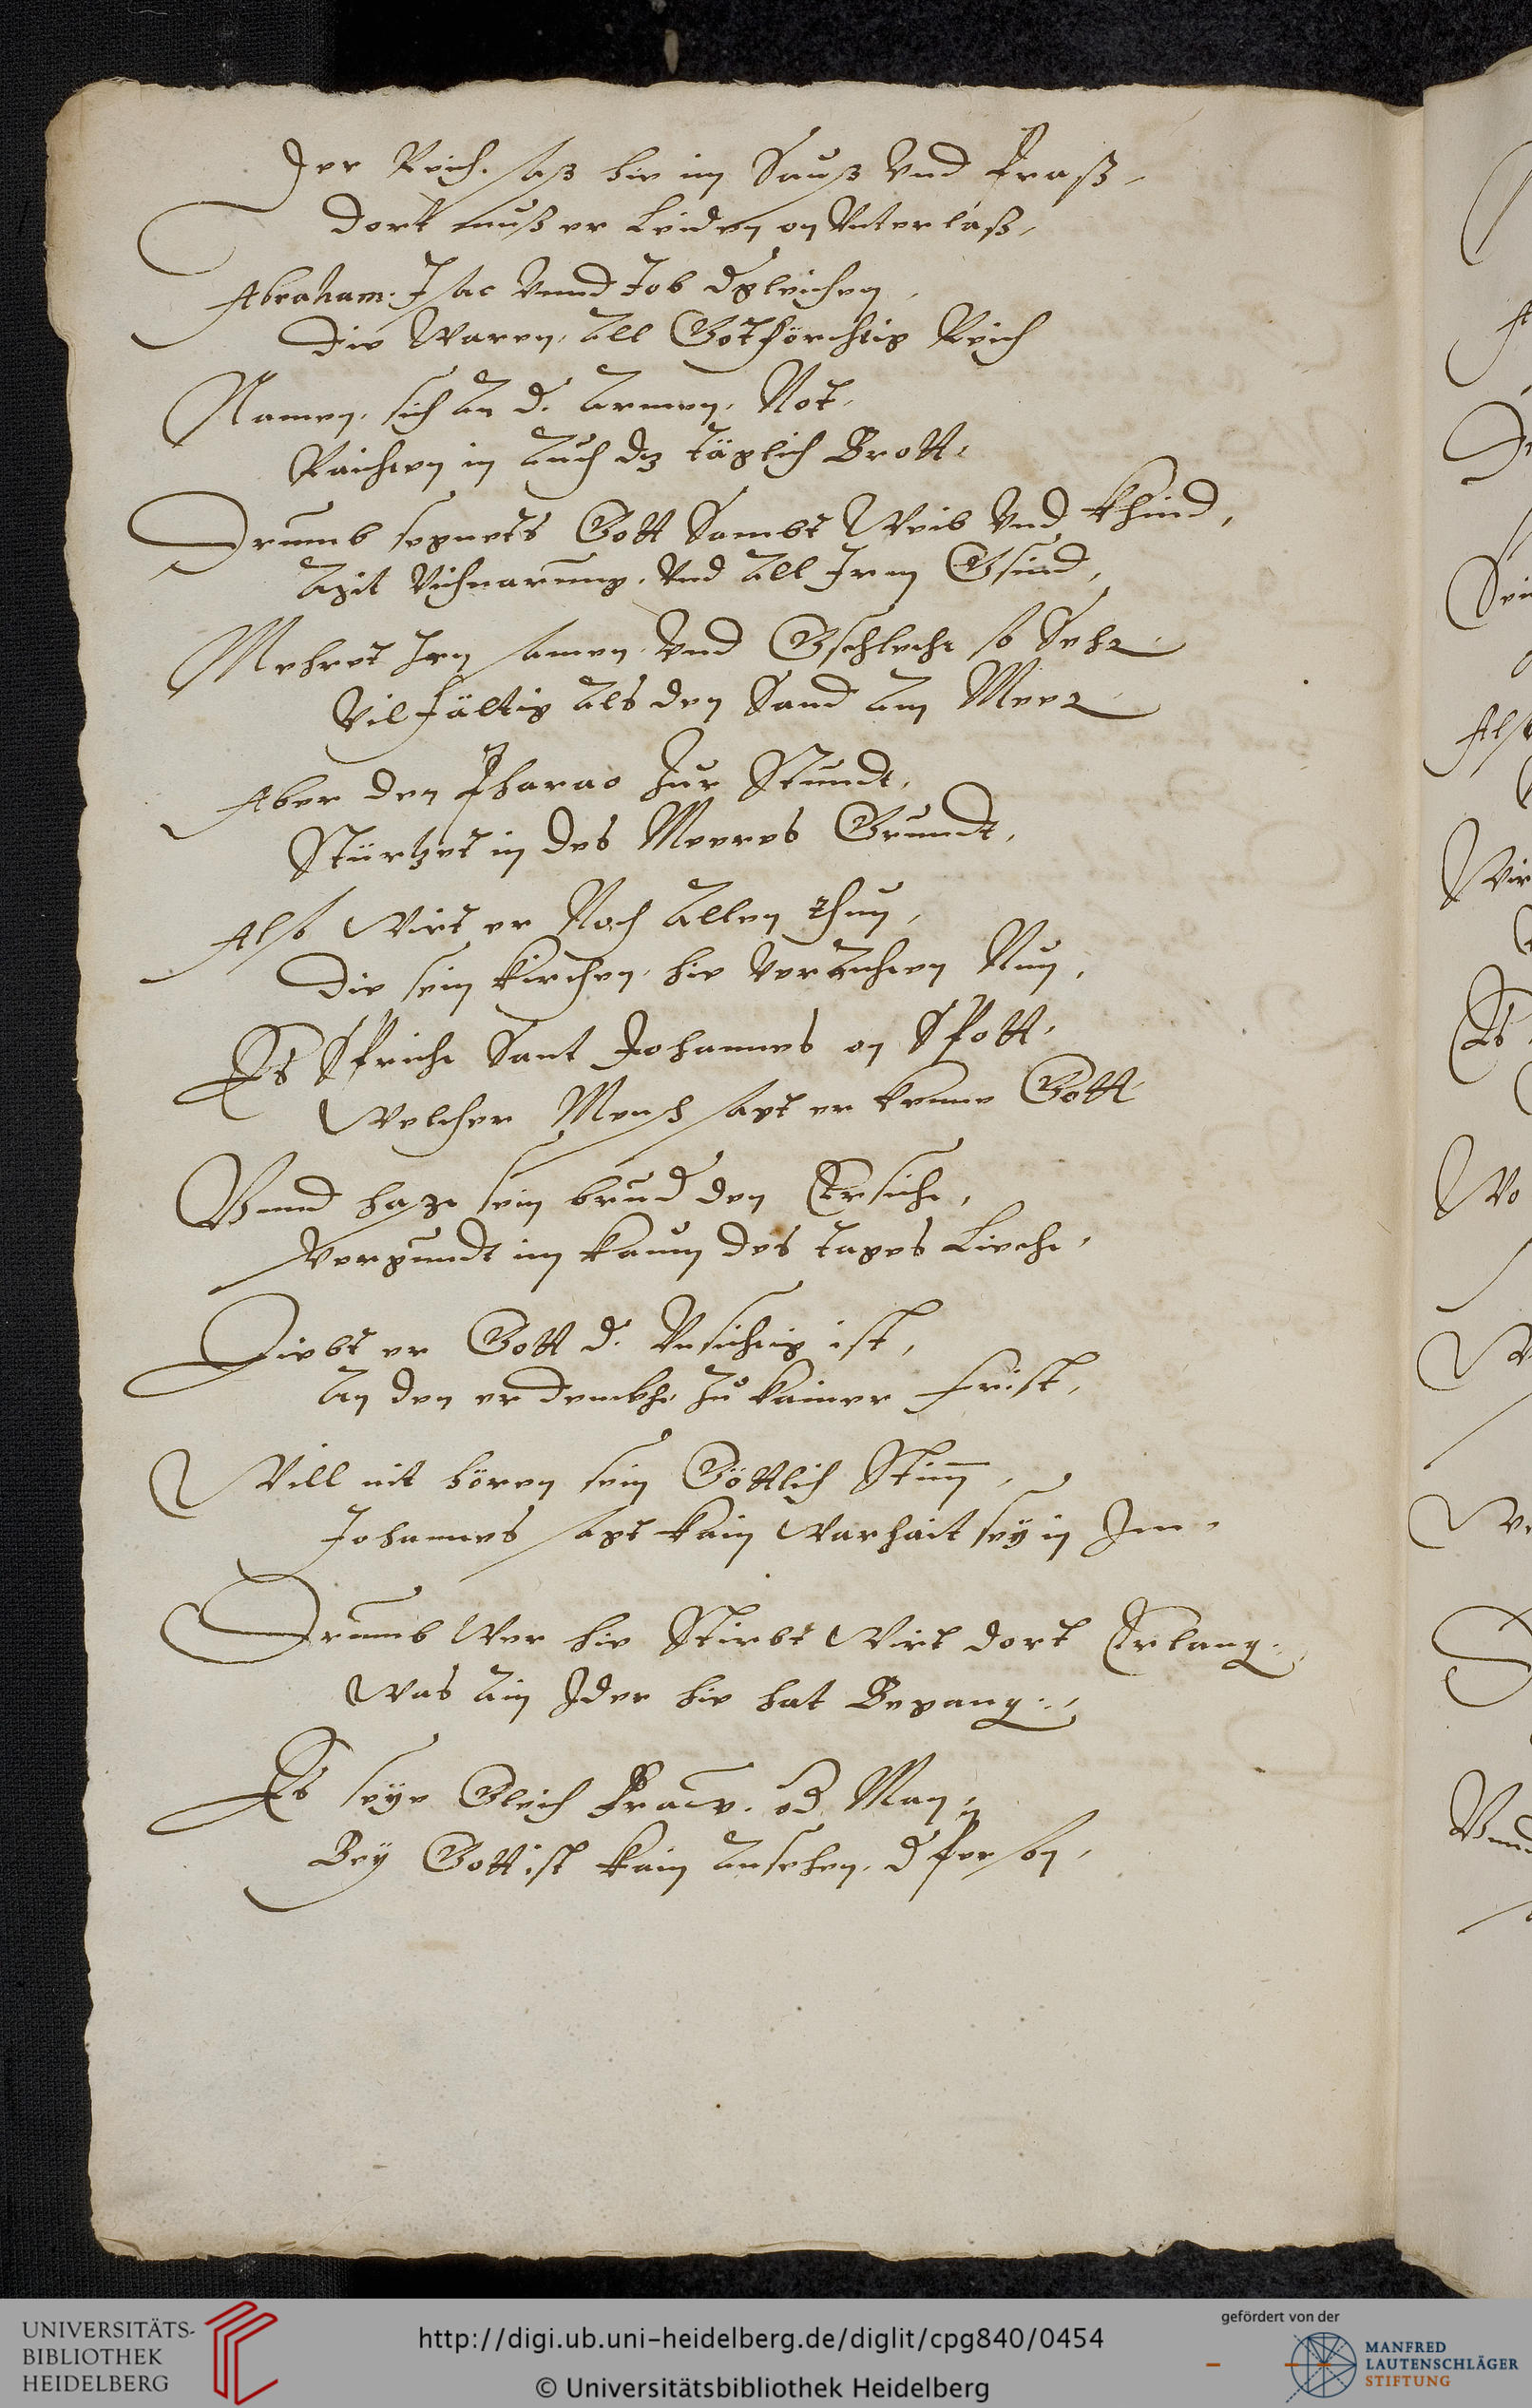 Der Reich. saß hie im Sauß Vnd Fraß,
dort muß er Leiden on Vnterlaß,
Abraham. Isac Vnnd Job dgleichen,
die Waren, All Gotförchtig Reich
Namen, sich An d. Armen, Not,
Raichten in Auch dz täglich Brott,
Drumb segnets Gott Sambt Weib Vnd Khind,
Vichnarung, Vnd All Iren Gsind,
Mehret Irn samen, Vnd Gschlecht so Sehr
Vilfältig Als den Sand Am Meer
Aber den Pharao Zur Stundt,
Stürtzet in des Meeres Grundt,
Also Wirt er Noch Allen thun,
die sein Kirchen, hie Verachten Nun,
Es Spricht Sant Johannes on Spott,
Welcher Mensch sagt er kenne Gott
Vnnd hasze sein brud den Ersicht,
Vergundt im kaum des tages Liecht,
Liebt er Gott d. Vnsichtig ist,
An den er denckht zu kainer Frist,
Will nit hören sein Göttlich Stim,
Johannes sagt kain Warhait sey in Im,
Drumb Wer hie Stirbt Wirt dort Erlang.,
Was Ain Ider hie hat Begang.,
Es seye Gleich Fraw. od Man,
Bey Gott ist kain Ansehen, d Person,
UNIVERSITÄTS-
BIBLIOTHEK
HEIDELBERG
http://digi.ub.uni-heidelberg.de/diglit/cpg840/0454
© Universitätsbibliothek Heidelberg
gefördert von der
MANFRED
LAUTENSCHLÄGER
STIFTUNG